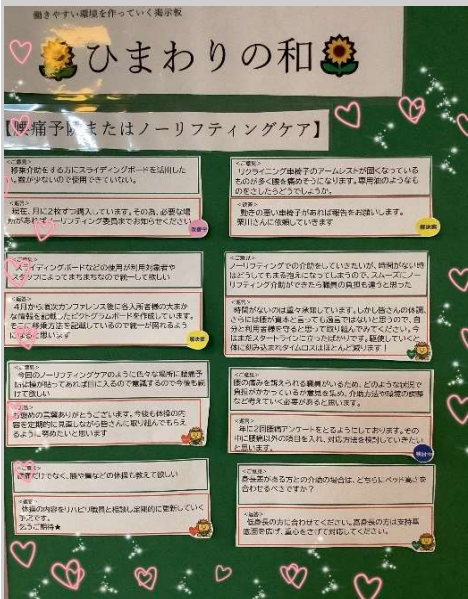 働きやすい環境を作っていく掲示板
ひまわりの和
【腰痛予防またはノーリフティングケア】
<ご意見>
移乗介助をする方にスライディングボードを活用した
数が少ないので使用できていない。
<返答>
現在、月に2枚ずつ購入しています。その為、必要な場
があればノーリフティング委員までお知らせください
<ご意見>
スライディングボードなどの使用が利用対象者や
スタッフによってまちまちなので統一して欲しい
<返答>
4月から順次カンファレンス後に各入所者様の大まか
な情報を記載したピクトグラムボードを作成しています。
そこに移乗方法を記載しているので統一が図れるよう
になると思います
<ご意見>
今回のノーリフティングケアのように色々な場所に腰痛予
が貼ってあれば目に入るので意識するので今後も続
けて欲しい
<返答>
お褒めの言葉ありがとうございます。今後も体操の内
容を定期的に見直しながら皆さんに取り組んでもらえ
るように努めたいと思います
<ご意見>
腰痛だけでなく、腕や肩などの体操も教えて欲しい
<返答>
体操の内容をリハビリ職員と相談し定期的に更新していく
予定です。
乞うご期待★
<ご意見>
リクライニング車椅子のアームレストが固くなっている
ものが多く腰を痛めそうになります。専用油のようなも
のをさしたらどうでしょうか。
<返答>
動きの悪い車椅子があれば報告をお願いします。
栗川さんに依頼していきます
<ご意見>
ノーリフティングでの介助をしていきたいが、時間がない時
はどうしても抱える控えになってしまうので、スムーズにノー
リフティング介助ができたら職員の負担も違うと思った
<返答>
時間がないのは重々承知しています。しかし皆さんの体調、
さらには腰が資本と言っても過言ではないと思うので、自
分と利用者様を守ると思って取り組んでみてください。今
はまだスタートラインに立ったばかりです。駆使していくと
体に刻み込まれタイムロスはほとんど減ります!
<ご意見>
腰の痛みを訴えられる職員がいるため、どのような状況で
負担がかかっているか意見を集め、介助方法や環境の調整
など考えていく必要があると思います。
<返答>
年に2回腰痛アンケートをとるようにしております。その
中に腰痛以外の項目を入れ、対応方法を検討していきたい
と思います。
検討中
<ご意見>
身長差がある方との介助の場合は、どちらにベッド高さを
合わせるべきですか?
<返答>
低身長の方に合わせてください。高身長の方は支持基
底面を広げ、重心をさげて対応してください。